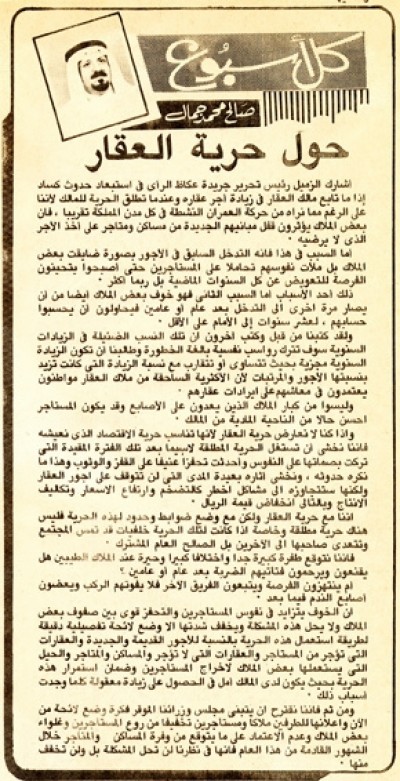 كل أسبوع
صالح محمد جمال
حول حرية العقار
اشارك الزميل رئيس تحرير جريدة عكاظ الرأى فى استبعاد حدوث كساد
اذا ما تابع مالك العقار فى زيادة اجر عقاره وعندما تطلق الحرية للمالك لأننا
على الرغم مما نراه من حركة العمران النشطة فى كل مدن المملكة تقريبا ، فان
بعض الملاك يؤثرون قفل مبانيهم الجديدة من مساكن ومتاجر على اخذ الأجر
الذى لا يرضيه
اما السبب فى هذا فانه التدخل السابق فى الأجور بصورة ضايقت بعض
الملاك بل ملأت نفوسهم تحاملا على المستأجرين حتى اصبحوا يتحينون
الفرصة للتعويض عن كل السنوات الماضية بل ربما اكثر .
ذلك احد الأسباب اما السبب الثانى فهو خوف بعض الملاك ايضا من ان
يصار مرة اخرى الى التدخل بعد عام أو عامين فيحاولون أن يحسبوا
حسابهم ، لعشر سنوات إلى الأمام على الأقل .
ولقد كتبنا من قبل وكتب اخرون ان تلك النسب الضئيلة فى الزيادات
السنوية سوف تترك رواسب نفسية بالغة الخطورة وطالبنا أن تكون الزيادة
السنوية مجزية بحيث تتساوى أو تتقارب مع نسبة الزيادة التى كانت تزيد
بنسبتها الأجور والمرتبات لأن الأكثرية الساحقة من ملاك العقار مواطنون
يعتمدون فى معاشهم على ايرادات عقارهم .
وليسوا من كبار الملاك الذين يعدون على الأصابع وقد يكون المستأجر
احسن حالا من الناحية المادية من المالك .
واذا كنا لا نعارض حرية العقار لأنها تناسب حرية الاقتصاد الذى نعيشه
فاننا نخشى ان تستغل الحرية المطلقة لاسيما بعد تلك الفترة المقيدة التى
تركت بصماتها على النفوس وأحدثت تحفزا عنيفا على القفز والوثوب وهذا ما
نكره حدوثه ، ونخشى اثاره بعيدة المدى التى لن تتوقف على اجور العقار
ولكنها ستتجاوزه الى مشاكل اخطر كالتضخم وارتفاع الاسعار وتكاليف
الانتاج وبالتالى انخفاض قيمة الريال .
اننا مع حرية العقار ولكن مع وضع ضوابط وحدود لهذه الحرية فليس
هناك حرية مطلقة وخاصة اذا كانت لتلك الحرية خلفيات قد تمس المجتمع
وتتعدى صاحبها الى الآخرين بل الصالح العام المشترك .
فاننا نتوقع طفرة كبيرة جدا واختلافا كبيرا وحيرة عند الملاك الطيبين هل
يقنعون ويرحمون فتأتيهم الضربة بعد عام أو عامين ؟
ام ينتهزون الفرصة ويتبعون الفريق الآخر فلا يفوتهم الركب ويعضون
أصابع الندم فيما بعد .
ان الخوف يتزايد فى نفوس المستأجرين والتحفز قوى بين صفوف بعض
الملاك ولا يحل هذه المشكلة ويخفف شدتها الا وضع لائحة تفصيلية دقيقة
لطريقة استعمال هذه الحرية بالنسبة للأجور القديمة والجديدة والعقارات
التى تؤجر من المستأجر والعقارات التى لا تؤجر والمساكن والمتاجر والحيل
التى يستعملها بعض الملاك لاخراج المستأجرين وضمان استمرار هذه
الحرية بحيث يكون لدى المالك امل فى الحصول على زيادة معقولة كلما وجدت
اسباب ذلك .
ومن ثم فاننا نقترح ان يتبنى مجلس وزرائنا الموقر فكرة وضع لائحة من
الآن واعلانها للطرفين ملاكا ومستأجرين تخفيفا من روع المستأجرين وغلواء
بعض الملاك وعدم الاعتماد على ما يتوقع من وفرة المساكن والمتاجر خلال
الشهور القادمة من هذا العام فانها فى نظرنا لن تحل المشكلة بل ولن تخفف
منها .